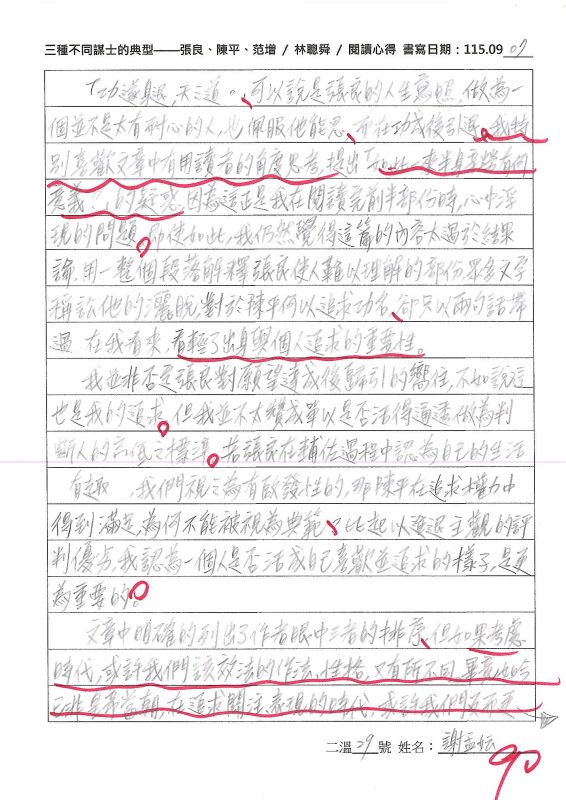 三種不同謀士的典型——張良、陳平、范增 / 林聰舜 / 閱讀心得 書寫日期：115.09 07
「功遂身退，天之道。」可以說是張良的人生寫照，做為一
個並不是太有耐心的人，也佩服他能忍，可在功成後引退。我特
別喜歡文章中有用讀者的角度思考，提出「如此一來半身享譽有何
意義？」的疑惑，因為這正是我在閱讀完前半部份時，心中浮
現的問題。而使如此，我仍然覺得這篇的內容太過於結果
論，用一整個段落解釋張良使人難以理解的部份眾多文字
稱訟他的灑脫，對於陳平何以追求功名，卻只以兩句話帶
過，在我看來，看輕了出身與個人追求的重要性。
我並非否定張良對願望達成後歸引的嚮往，不如說這
也是我的追求，但我並不太贊成單以是否活得通透做為判
斷人的高低之標準。若張良在輔佐過程中認為自己的生活
有趣，我們視之為有啟發性的，那陳平在追求權力中
得到滿足為何不能被視為典範？比起以遠近主觀的評
判優劣，我認為一個人是否活成自己喜歡並追求的樣子，是更
為重要的。
文章中明確的列出了作者眼中三者的排序，但如果考慮
時代，或許我們該效法的作法、性格，又有所不同，畢竟
在追求關注、表現的時代，或許我們不需要
二溫 29 號 姓名：謝孟妘
90